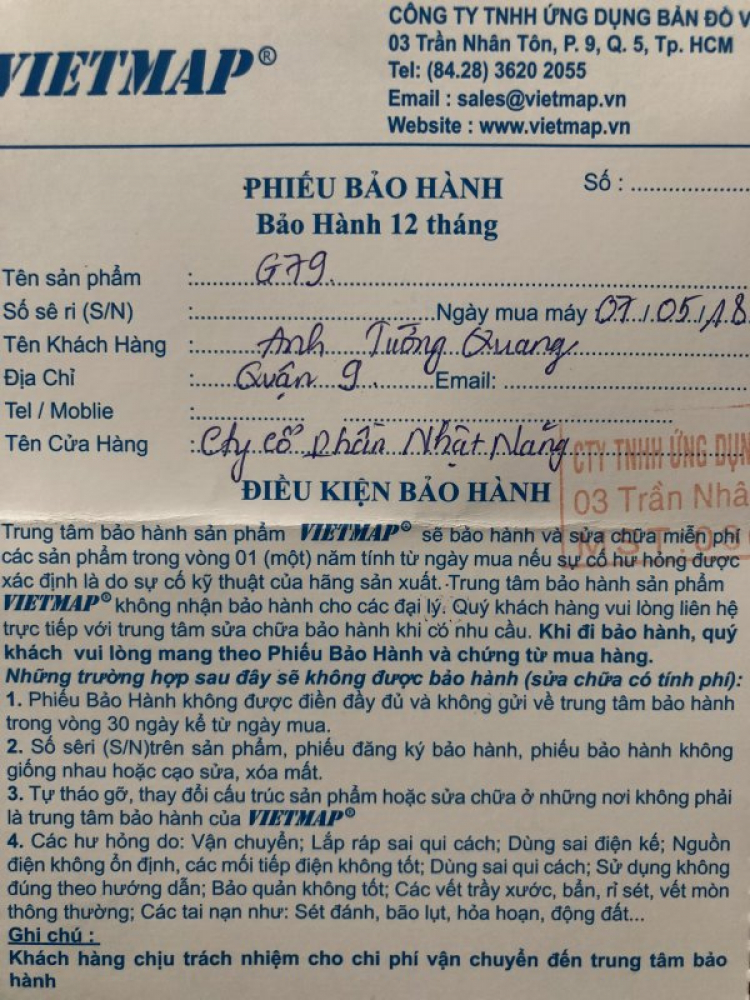 VIETMAP®
CÔNG TY TNHH ỨNG DỤNG BẢN ĐỒ V
03 Trần Nhân Tôn, P. 9, Q. 5, Tp. HCM
Tel: (84.28) 3620 2055
Email : sales@vietmap.vn
Website : www.vietmap.vn
PHIẾU BẢO HÀNH
Số : ....................
Bảo Hành 12 tháng
Tên sản phẩm :..........G79..........
Số sê ri (S/N) :..........Ngày mua máy 07/05/18
Tên Khách Hàng :..........Anh Tường Quang..........
Địa Chỉ :..........Quận 9..........Email: ..........
Tel / Moblie :....................
Tên Cửa Hàng :Cty cổ phần Nhật Năng
CTY TNHH ỨNG DỤN
03 Trần Nhâ
MST:03
ĐIỀU KIỆN BẢO HÀNH
Trung tâm bảo hành sản phẩm VIETMAP® sẽ bảo hành và sửa chữa miễn phí
các sản phẩm trong vòng 01 (một) năm tính từ ngày mua nếu sự cố hư hỏng được
xác định là do sự cố kỹ thuật của hãng sản xuất. Trung tâm bảo hành sản phẩm
VIETMAP® không nhận bảo hành cho các đại lý. Quý khách hàng vui lòng liên hệ
trực tiếp với trung tâm sửa chữa bảo hành khi có nhu cầu. Khi đi bảo hành, quý
khách vui lòng mang theo Phiếu Bảo Hành và chứng từ mua hàng.
Những trường hợp sau đây sẽ không được bảo hành (sửa chữa có tính phí):
1. Phiếu Bảo Hành không được điền đầy đủ và không gửi về trung tâm bảo hành
trong vòng 30 ngày kể từ ngày mua.
2. Số sêri (S/N)trên sản phẩm, phiếu đăng ký bảo hành, phiếu bảo hành không
giống nhau hoặc cạo sửa, xóa mất.
3. Tự tháo gỡ, thay đổi cấu trúc sản phẩm hoặc sửa chữa ở những nơi không phải
là trung tâm bảo hành của VIETMAP®
4. Các hư hỏng do: Vận chuyển; Lắp ráp sai qui cách; Dùng sai điện kế; Nguồn
điện không ổn định, các mối tiếp điện không tốt; Dùng sai qui cách; Sử dụng không
đúng theo hướng dẫn; Bảo quản không tốt; Các vết trầy xước, bẩn, rỉ sét, vết mòn
thông thường; Các tai nạn như: Sét đánh, bão lụt, hỏa hoạn, động đất...
Ghi chú :
Khách hàng chịu trách nhiệm cho chi phí vận chuyển đến trung tâm bảo
hành